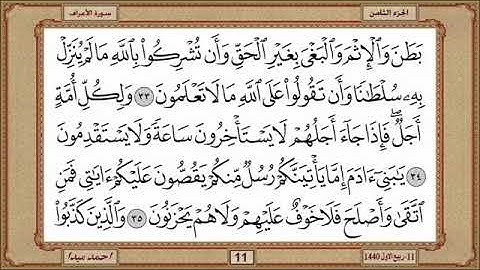 الجزء الثامن
سورة الأعراف
بَطَنَ وَٱلْإِثْمَ وَٱلْبَغْيَ بِغَيْرِ ٱلْحَقِّ وَأَن تُشْرِكُوا۟ بِٱللَّهِ مَا لَمْ يُنَزِّلْ
بِهِۦ سُلْطَٰنًا وَأَن تَقُولُوا۟ عَلَى ٱللَّهِ مَا لَا تَعْلَمُونَ ٣٣ وَلِكُلِّ أُمَّةٍ
أَجَلٌ ۖ فَإِذَا جَآءَ أَجَلُهُمْ لَا يَسْتَأْخِرُونَ سَاعَةً وَلَا يَسْتَقْدِمُونَ
٣٤ يَٰبَنِىٓ ءَادَمَ إِمَّا يَأْتِيَنَّكُمْ رُسُلٌ مِّنكُمْ يَقُصُّونَ عَلَيْكُمْ ءَايَٰتِى فَمَنِ
ٱتَّقَىٰ وَأَصْلَحَ فَلَا خَوْفٌ عَلَيْهِمْ وَلَا هُمْ يَحْزَنُونَ ٣٥ وَٱلَّذِينَ كَذَّبُوا۟
11-ربيع الاول 1440
11
احمد عبدا